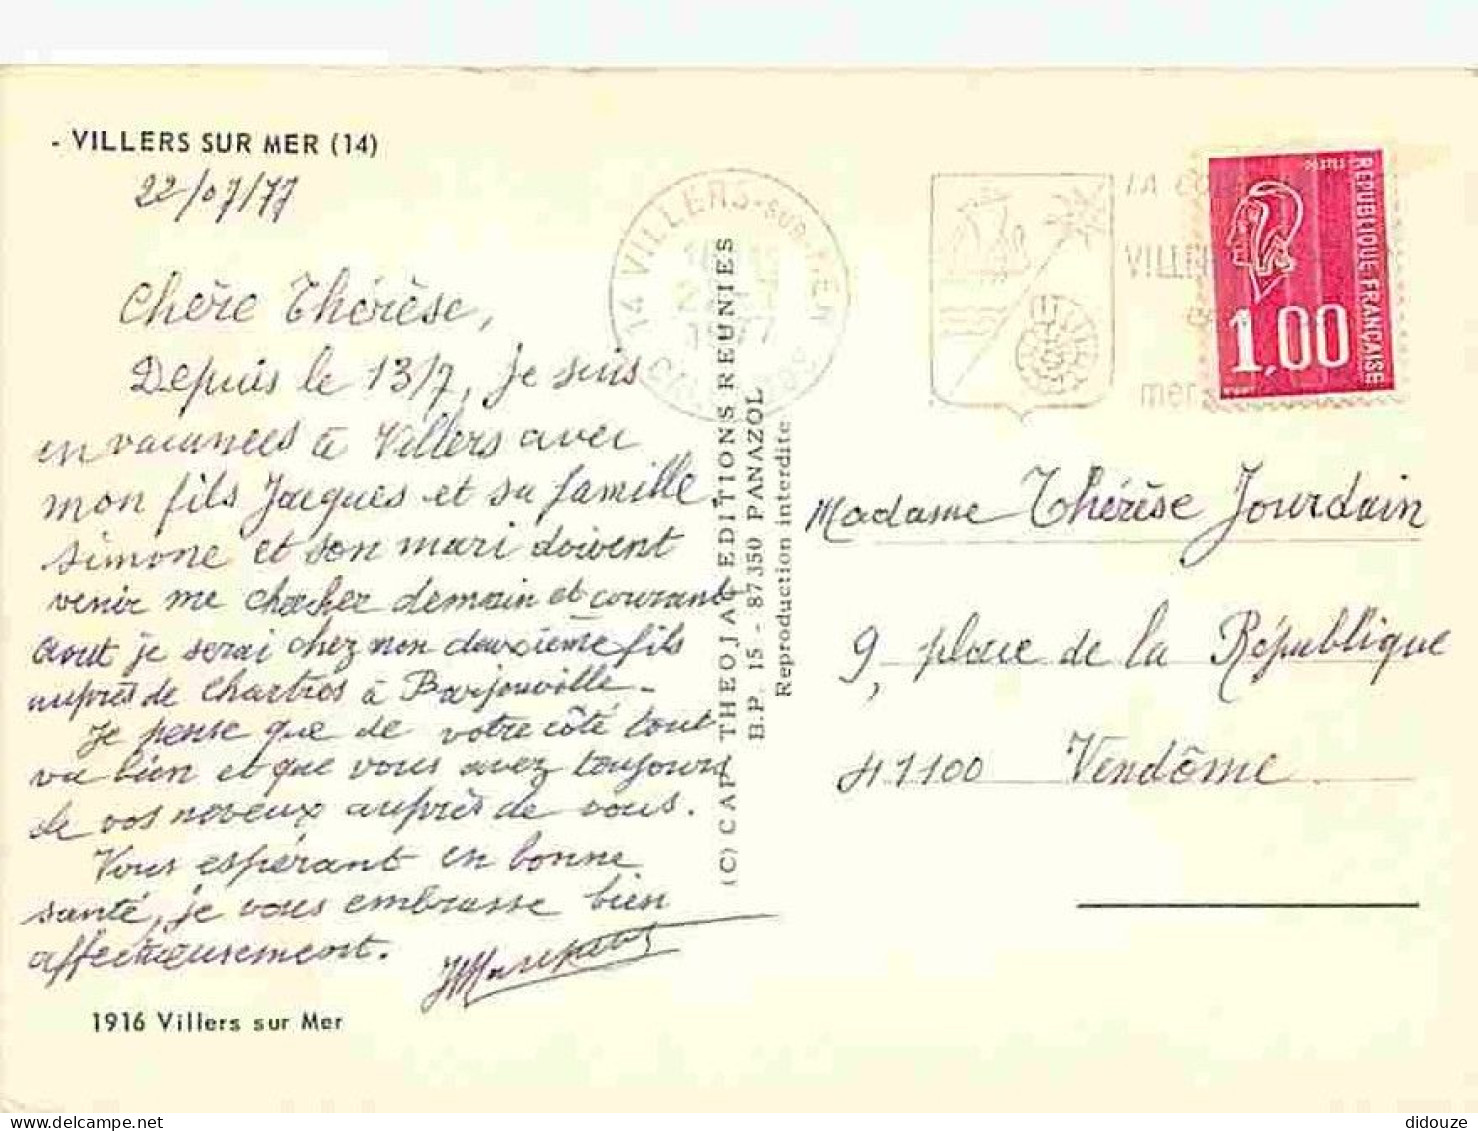 - VILLERS SUR MER (14)
22/07/77
Chère Thérèse,
Depuis le 13/7, je suis
en vacances à Villers avec
mon fils Jacques et sa famille
Simone et son mari doivent
venir me chercher demain et courant
aout je serai chez mon deuxième fils
auprès de Chartres à Barjouville.
Je pense que de votre côté tout
va bien et que vous avez toujours
de vos neveux auprès de vous.
Vous espérant en bonne
santé, je vous embrasse bien
affectueusement.
1916 Villers sur Mer
(C) CAP THEOJAC EDITIONS REUNIES
B.P. 15 - 87350 PANAZOL
Reproduction interdite
14 VILLERS-SUR-MER
1977
CALVADOS
LA CO
VILLER
mer
POSTES
REPUBLIQUE FRANÇAISE
1,00
Madame Thérèse Jourdain
9, place de la République
41100 Vendôme
didouze